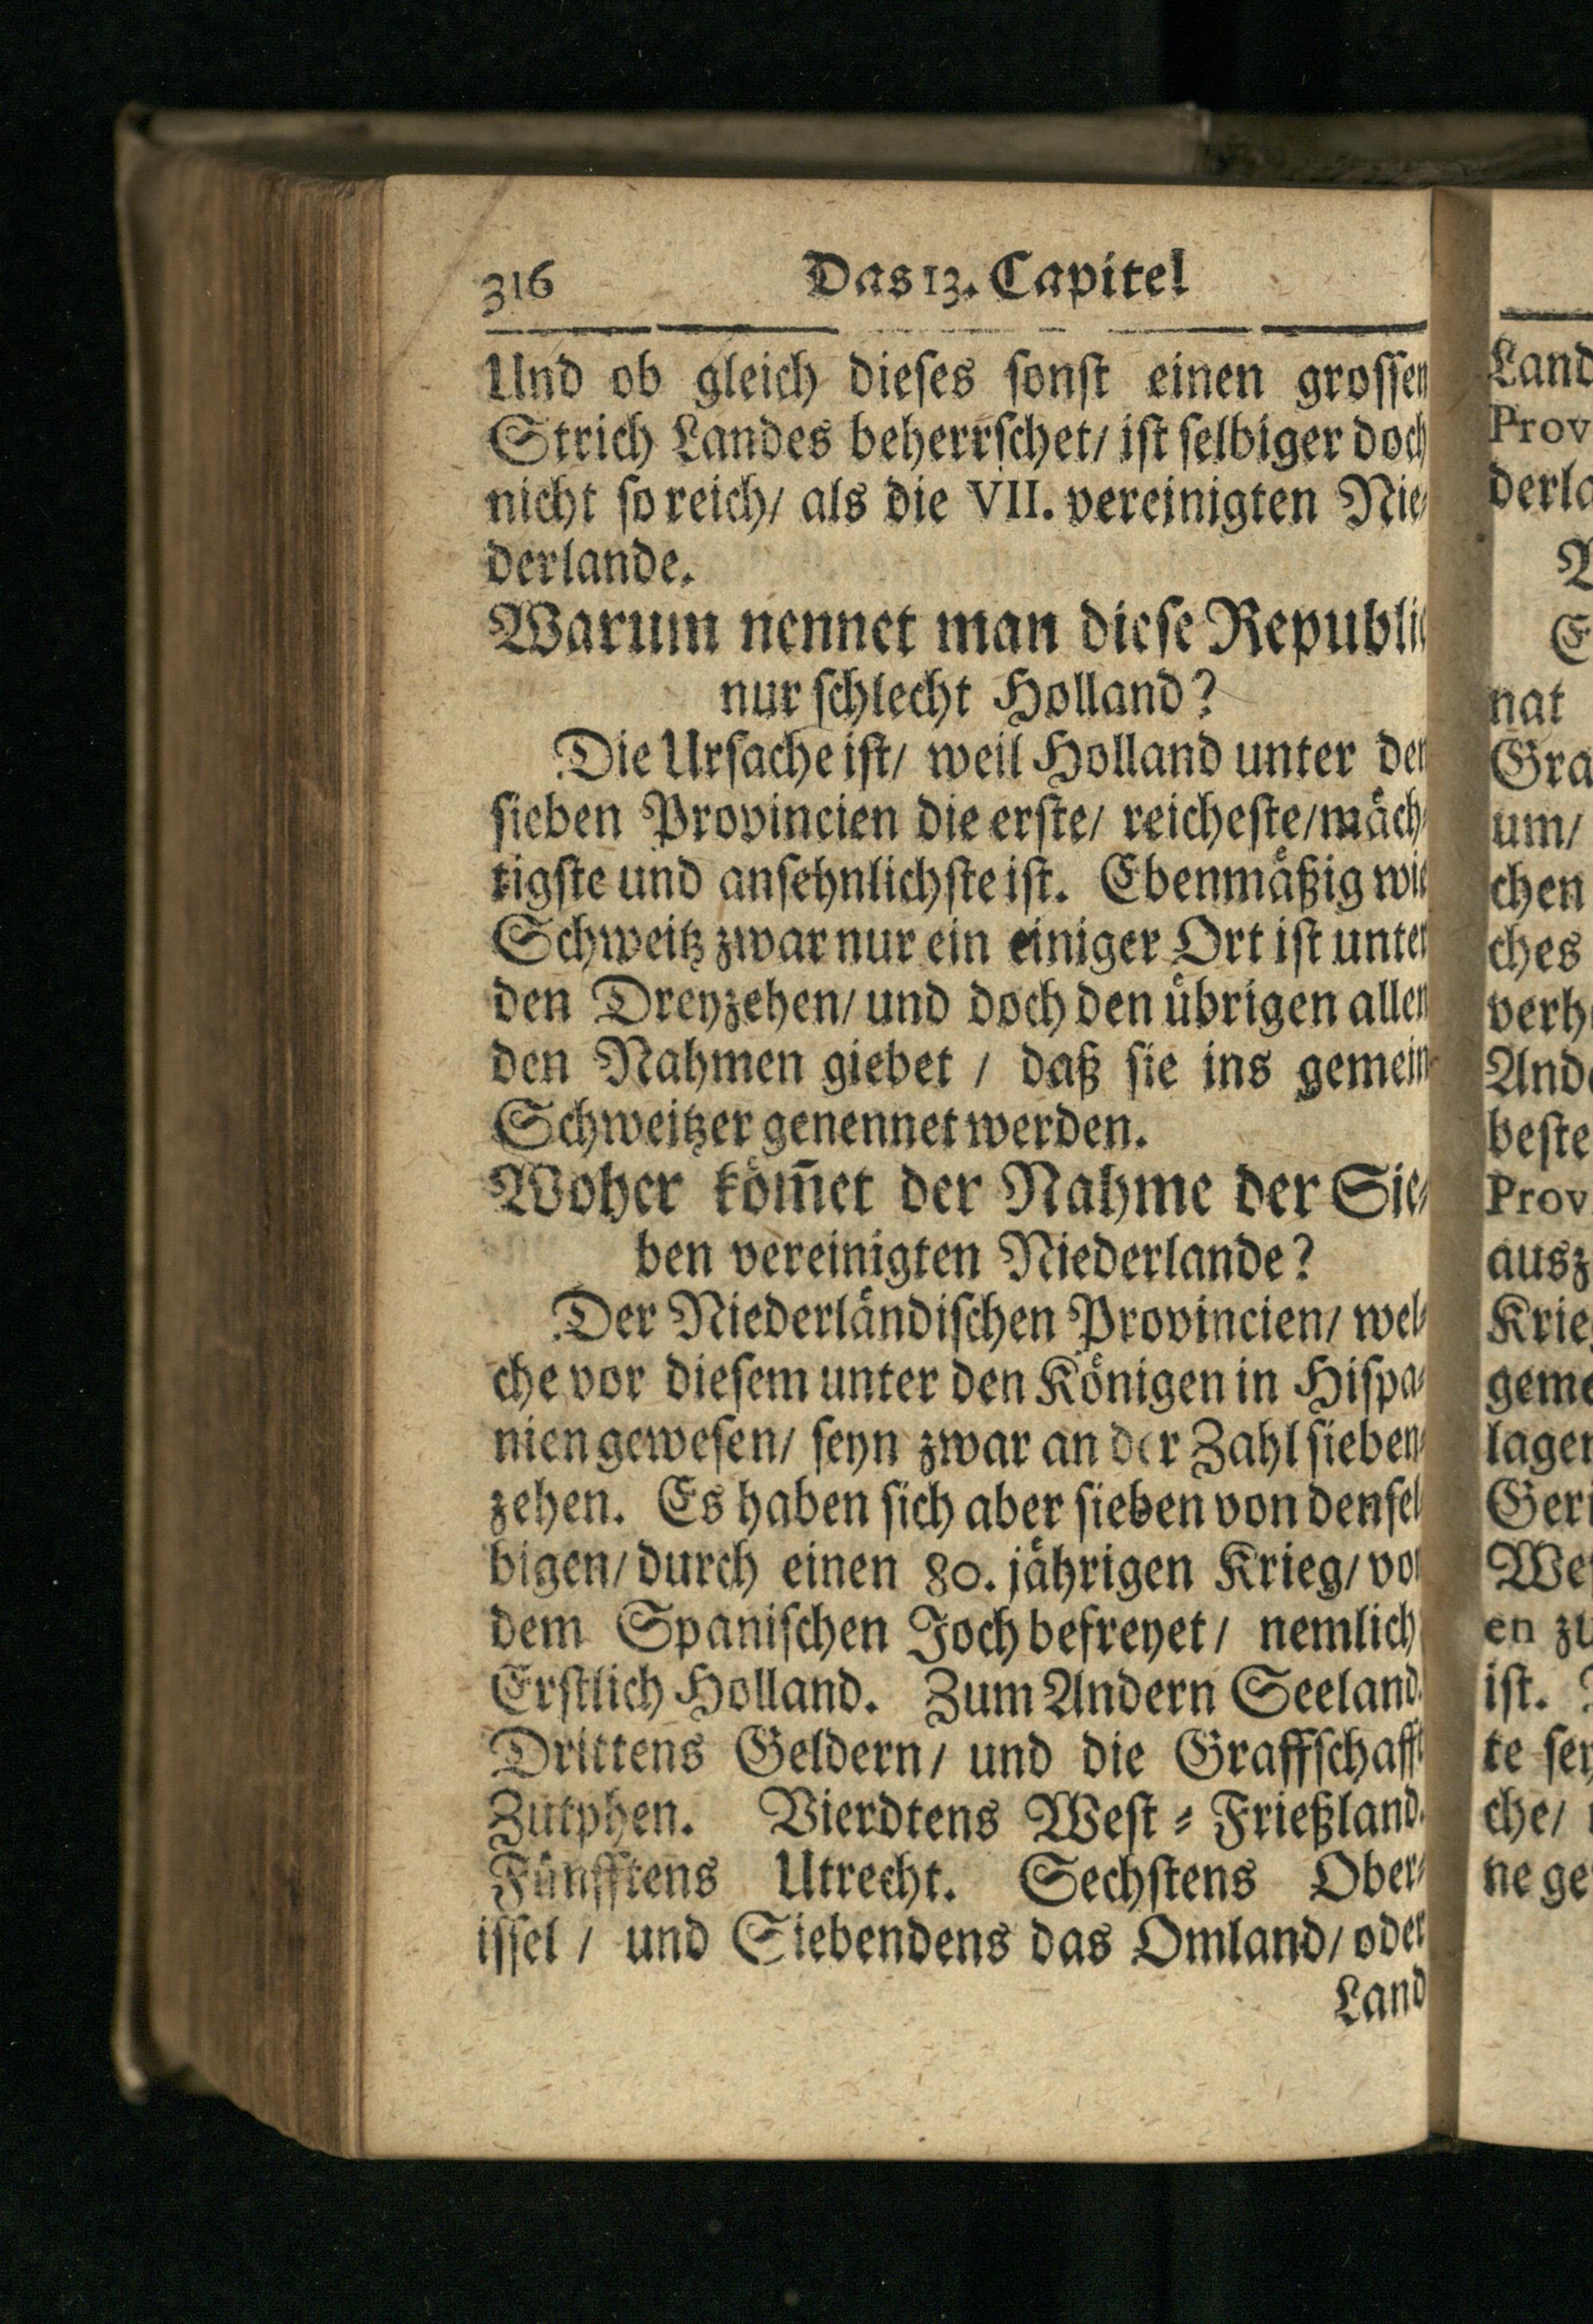 316 Das 13. Capitel
Und ob gleich dieses sonst einen grossen
Strich Landes beherrschet/ ist selbiger doch
nicht so reich/ als die VII. vereinigten Nie-
derlande.
Warum nennet man diese Republic
nur schlecht Holland?
Die Ursache ist/ weil Holland unter den
sieben Provincien die erste/ reicheste/ mäch-
tigste und ansehnlichste ist. Ebenmäßig wie
Schweitz zwar nur ein einiger Ort ist unter
den Dreyzehen/ und doch den übrigen allen
den Nahmen giebet / daß sie ins gemein
Schweitzer genennet werden.
Woher köm̅et der Nahme der Sie-
ben vereinigten Niederlande?
Der Niederländischen Provincien/ wel-
che vor diesem unter den Königen in Hispa-
nien gewesen/ seyn zwar an der Zahl sieben-
zehen. Es haben sich aber sieben von densel
bigen/ durch einen 80. jährigen Krieg/ von
dem Spanischen Joch befreyet/ nemlich
Erstlich Holland. Zum Andern Seeland.
Drittens Geldern/ und die Graffschafft
Zutphen. Vierdtens West-Frießland.
Fünfftens Utrecht. Sechstens Ober-
issel / und Siebendens das Omland/ oder
Land
Land
Prov
derla
nat
Gra
um/
chen
ches
verh
And
beste
Prov
ausz
Krie
geme
lager
Geri
Wes
en zu
ist.
te sey
che/
ne ge